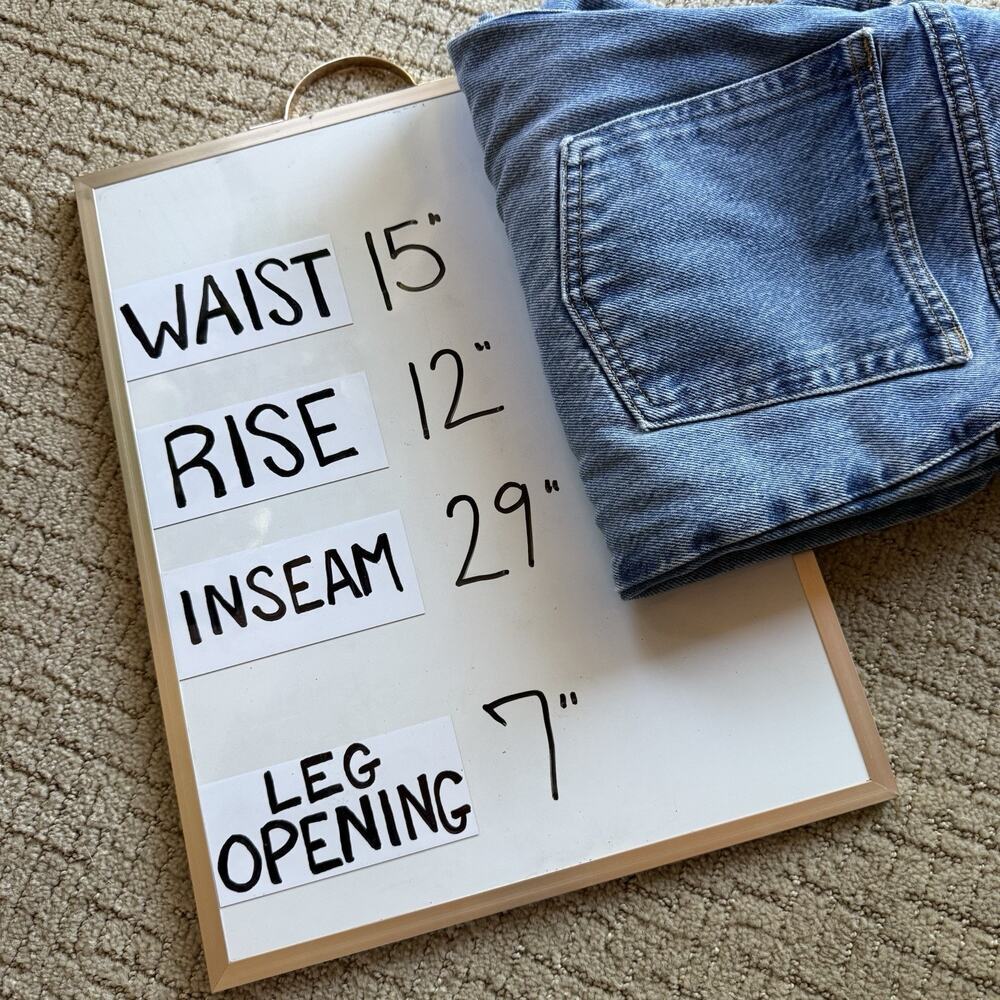 WAIST 15"
RISE 12"
INSEAM 29"
LEG
OPENING 7"